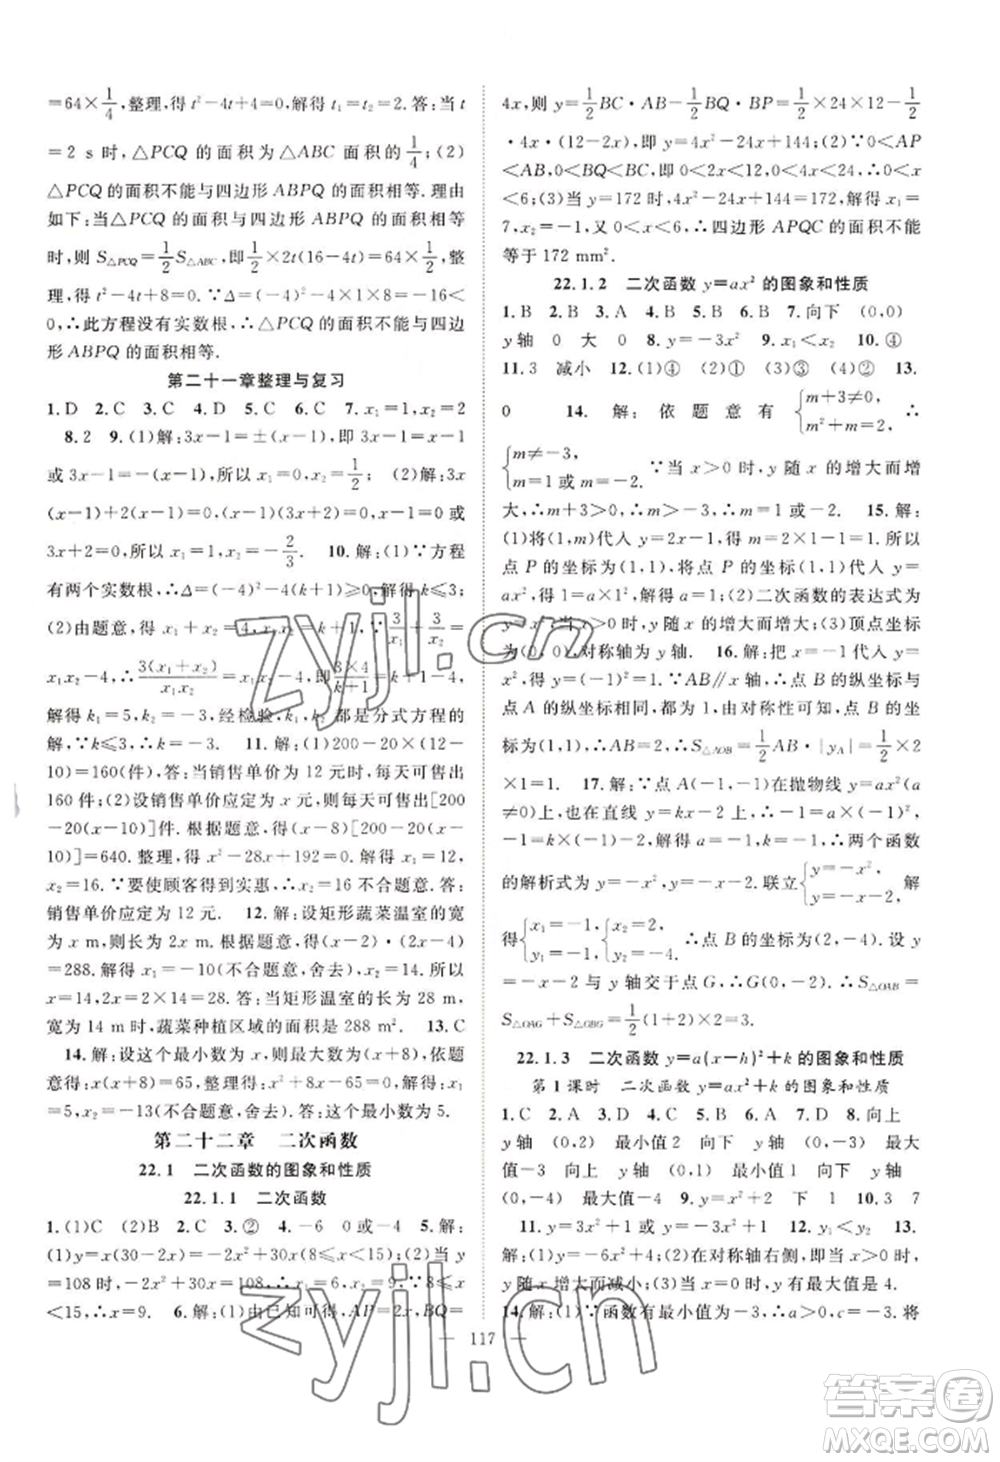 =64×1/4,整理,得 t²-4t+4=0.解得 t₁=t₂=2.答:当 t
=2 s时,△PCQ 的面积为△ABC 面积的1/4;(2)
△PCQ 的面积不能与四边形 ABPQ 的面积相等.理由
如下:当△PCQ 的面积与四边形 ABPQ 的面积相等
时,则 S△PCQ=1/2 S△ABC,即1/2×2t(16-4t)=64×1/2,整
理,得 t²-4t+8=0.∵Δ=(-4)²-4×1×8=-16<
0,∴此方程没有实数根,∴△PCQ 的面积不能与四边
形 ABPQ 的面积相等.
第二十一章整理与复习
1.D 2.C 3.C 4.D 5.C 6.C 7.x₁=1,x₂=2
8.2 9.(1)解:3x-1=±(x-1),即 3x-1=x-1
或3x-1=-(x-1),所以 x₁=0,x₂=1/2; (2)解:3x
(x-1)+2(x-1)=0,(x-1)(3x+2)=0,x-1=0或
3x+2=0,所以 x₁=1,x₂=-2/3. 10.解:(1)∵方程
有两个实数根,∴Δ=(-4)²-4(k+1)≥0.解得 k≤3;
(2)由题意,得 x₁+x₂=4,x₁x₂=k+1.∵3/x₁+3/x₂=
x₁x₂-4,∴3(x₁+x₂)/x₁x₂=x₁x₂-4,∴3×4/(k+1)=k+1-4.
解得 k₁=5,k₂=-3,经检验,k₁,k₂ 都是分式方程的
解.∵k≤3,∴k=-3. 11.解:(1)200-20×(12-
10)=160(件).答:当销售单价为 12 元时,每天可售出
160 件;(2)设销售单价应定为 x 元,则每天可售出[200
-20(x-10)]件.根据题意,得(x-8)[200-20(x-
10)]=640.整理,得 x²-28x+192=0.解得 x₁=12,
x₂=16.∵要使顾客得到实惠,∴x₂=16不合题意.答:
销售单价应定为 12 元. 12.解:设矩形蔬菜温室的宽
为 x m,则长为 2x m.根据题意,得(x-2)·(2x-4)=
288.解得 x₁=-10(不合题意,舍去),x₂=14.所以
2x=2×14=28.答:当矩形温室的长为 28 m,
宽为 14 m时,蔬菜种植区域的面积是 288 m². 13.C
14.解:设这个最小数为 x,则最大数为(x+8),依题
意得:x(x+8)=65,整理得:x²+8x-65=0,解得:x₁
=5,x₂=-13(不合题意,舍去).答:这个最小数为 5.
第二十二章 二次函数
22.1 二次函数的图象和性质
22.1.1 二次函数
1.(1)C (2)B 2.C 3.② 4.-6 0或-4 5.解:
(1)y=x(30-2x)=-2x²+30x(7.5≤x<15);(2)当 y
=108 时,-2x²+30x=108,解得 x₁=6,x₂=9,∵7.5≤x
<15,∴x=9. 6.解:(1)由已知可得,AP=2x,BQ=
4x,则 y=1/2BC·AB-1/2BQ·BP=1/2×24×12-1/2
·4x·(12-2x),即 y=4x²-24x+144;(2)∵0<AP
<AB,0<BQ<BC,即 0<2x<12,0<4x<24,∴0<x
<6;(3)当 y=172 时,4x²-24x+144=172,解得 x₁=
7,x₂=-1,又 0<x<6,∴四边形 APQC 的面积不能
等于 172 mm².
22.1.2 二次函数 y=ax² 的图象和性质
1.B 2.B 3.A 4.B 5.B 6.B 7.向下 (0,0)
y 轴 0 大 0 8.y=-3x² 9.x₁<x₂ 10.④
11.3 减小 12.(1)④ (2)② (3)① (4)③ 13.
0 14.解:依题意有{m+3≠0,m²+m=2 ∴
{m≠-3,m=1或m=-2. ∵当 x>0时,y 随 x 的增大而增
大,∴m+3>0,∴m>-3,∴m=1 或 m=-2. 15.解:
(1)将(1,m)代入 y=2x-1,得 m=2×1-1=1.所以
点 P 的坐标为(1,1).将点 P 的坐标(1,1)代入 y=
ax²,得 1=a×1²,解得 a=1;(2)二次函数的表达式为
y=x²,当 x>0时,y 随 x 的增大而增大;(3)顶点坐标
为(0,0),对称轴为 y 轴. 16.解:把 x=1代入 y=x²
得 y=1,∴A(1,1).∵AB∥x 轴,∴点 B 的纵坐标与点
A 的纵坐标相同,都为 1,由对称性可知,点 B 的坐
标为(-1,1),∴AB=2,∴S△AOB=1/2AB·|yA|=1/2×2
×1=1. 17.解:∵点 A(-1,-1)在抛物线 y=ax²(a
≠0)上,也在直线 y=kx-2上,∴-1=a×(-1)²,
-1=k×(-1)-2,解得 a=-1,k=-1,∴两个函数
的解析式为 y=-x²,y=-x-2.联立{y=-x²,y=-x-2. 解
得{x₁=-1,y₁=-1 {x₂=2,y₂=-4. ∴点 B 的坐标为(2,-4).设 y
=-x-2 与 y 轴交于点 G,∴G(0,-2),∴S△OAB=
S△OAG+S△OBG=1/2(1+2)×2=3.
22.1.3 二次函数 y=a(x-h)²+k 的图象和性质
第 1 课时 二次函数 y=ax²+k 的图象和性质
1.C 2.C 3.D 4.D 5.B 6.A 7.D 8.向上
y 轴 (0,2) 最小值2 向上 y轴 (0,-3)
最小值-3 向下 y 轴 (0,1) 最大值 1 向下 y 轴
(0,-4) 最大值-4 9.y=-x²+2 下 1 10.3 7
11.y=3x²+1 或 y=-3x²+1 12.y₁<y₂ 13.
解:(1)y=-3x²+4;(2)在对称轴右侧,即当 x>0 时,
y 随 x 增大而减小;(3)当 x=0时,y 有最大值是 4.
14.解:(1)∵函数有最小值为-3,∴a>0,c=-3,将
117
zyjl.cn
zyjl.cn
答案圈
MXQE.COM